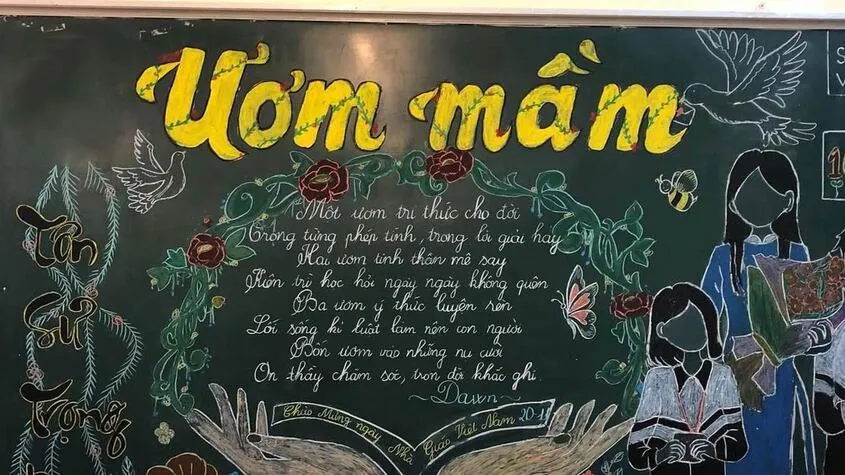 Ươm mầm
Một ươm tri thức cho đời
Trồng từng phép tính, trong lời giải hay
Hai ươm tinh thần mê say
Kiên trì học hỏi ngày ngày không quên
Ba ươm ý thức luyện rèn
Lối sống kỉ luật làm nên con người
Bốn ươm vào những nụ cười
Ơn thầy chăm sóc, trọn đời khắc ghi
~Dawn~
Chào Mừng ngày Nhà Giáo Việt Nam 20-11
Tôn
Sư
Trọng